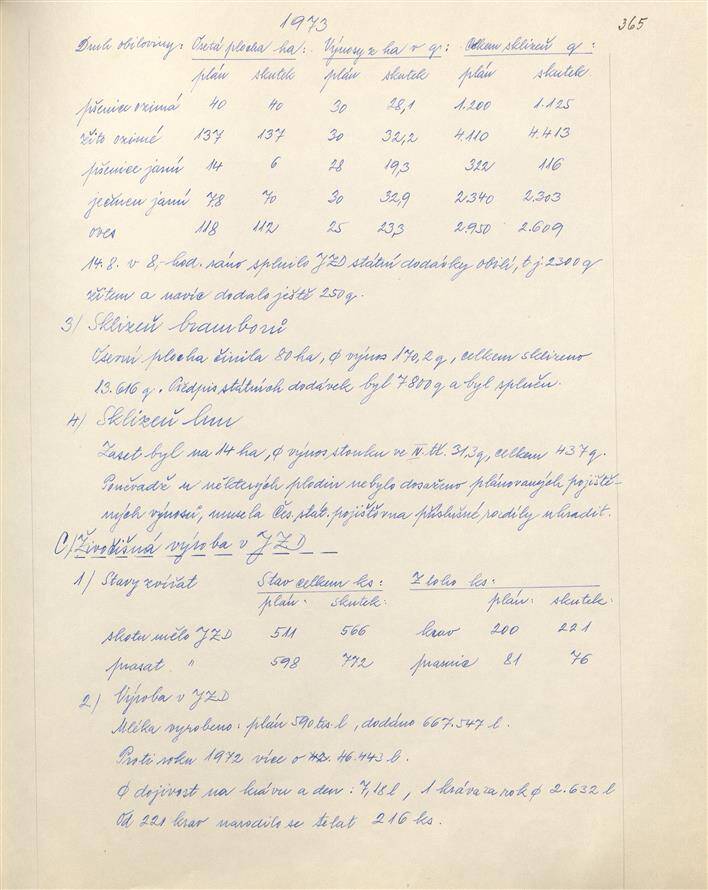 1973
365
Druh obiloviny: Osetá plocha ha: Výnosy z ha v q: Celkem sklizeň q:
plán skutek plán skutek plán skutek
pšenice ozimá 40 40 30 28,1 1.200 1.125
žito ozimé 137 137 30 32,2 4.110 4.413
pšenice jarní 14 6 28 19,3 322 116
ječmen jarní 78 70 30 32,9 2.340 2.303
oves 118 112 25 23,3 2.950 2.609
14.8. v 8,- hod. ráno splnilo JZD státní dodávky obilí, t.j. 2300 q
žitem a navíc dodalo ještě 250 q.
3) Sklizeň bramborů
Osevní plocha činila 80 ha, ϕ výnos 170,2 q, celkem sklizeno
13.616 q. Předpis státních dodávek byl 7800 q a byl splněn.
4) Sklizeň lnu
Zaset byl na 14 ha, ϕ výnos stonku ve IV. tř. 31,3 q, celkem 437 q.
Poněvadž u některých plodin nebylo dosaženo plánovaných pojiště-
ných výnosů, musela Čes. stát. pojišťovna příslušné rozdíly uhradit.
C) Živočišná výroba v JZD
1) Stavy zvířat Stav celkem ks: Z toho ks:
plán: skutek: plán: skutek:
skotu mělo JZD 511 566 krav 200 221
prasat " 598 772 prasnic 81 76
2) Výroba v JZD
Mléka vyrobeno: plán 590 tis. l, dodáno 667.547 l.
Proti roku 1972 více o 46.443 l.
ϕ dojivost na krávu a den: 7,18 l, 1 kráva za rok ϕ 2.632 l
Od 221 krav narodilo se telat 216 ks.